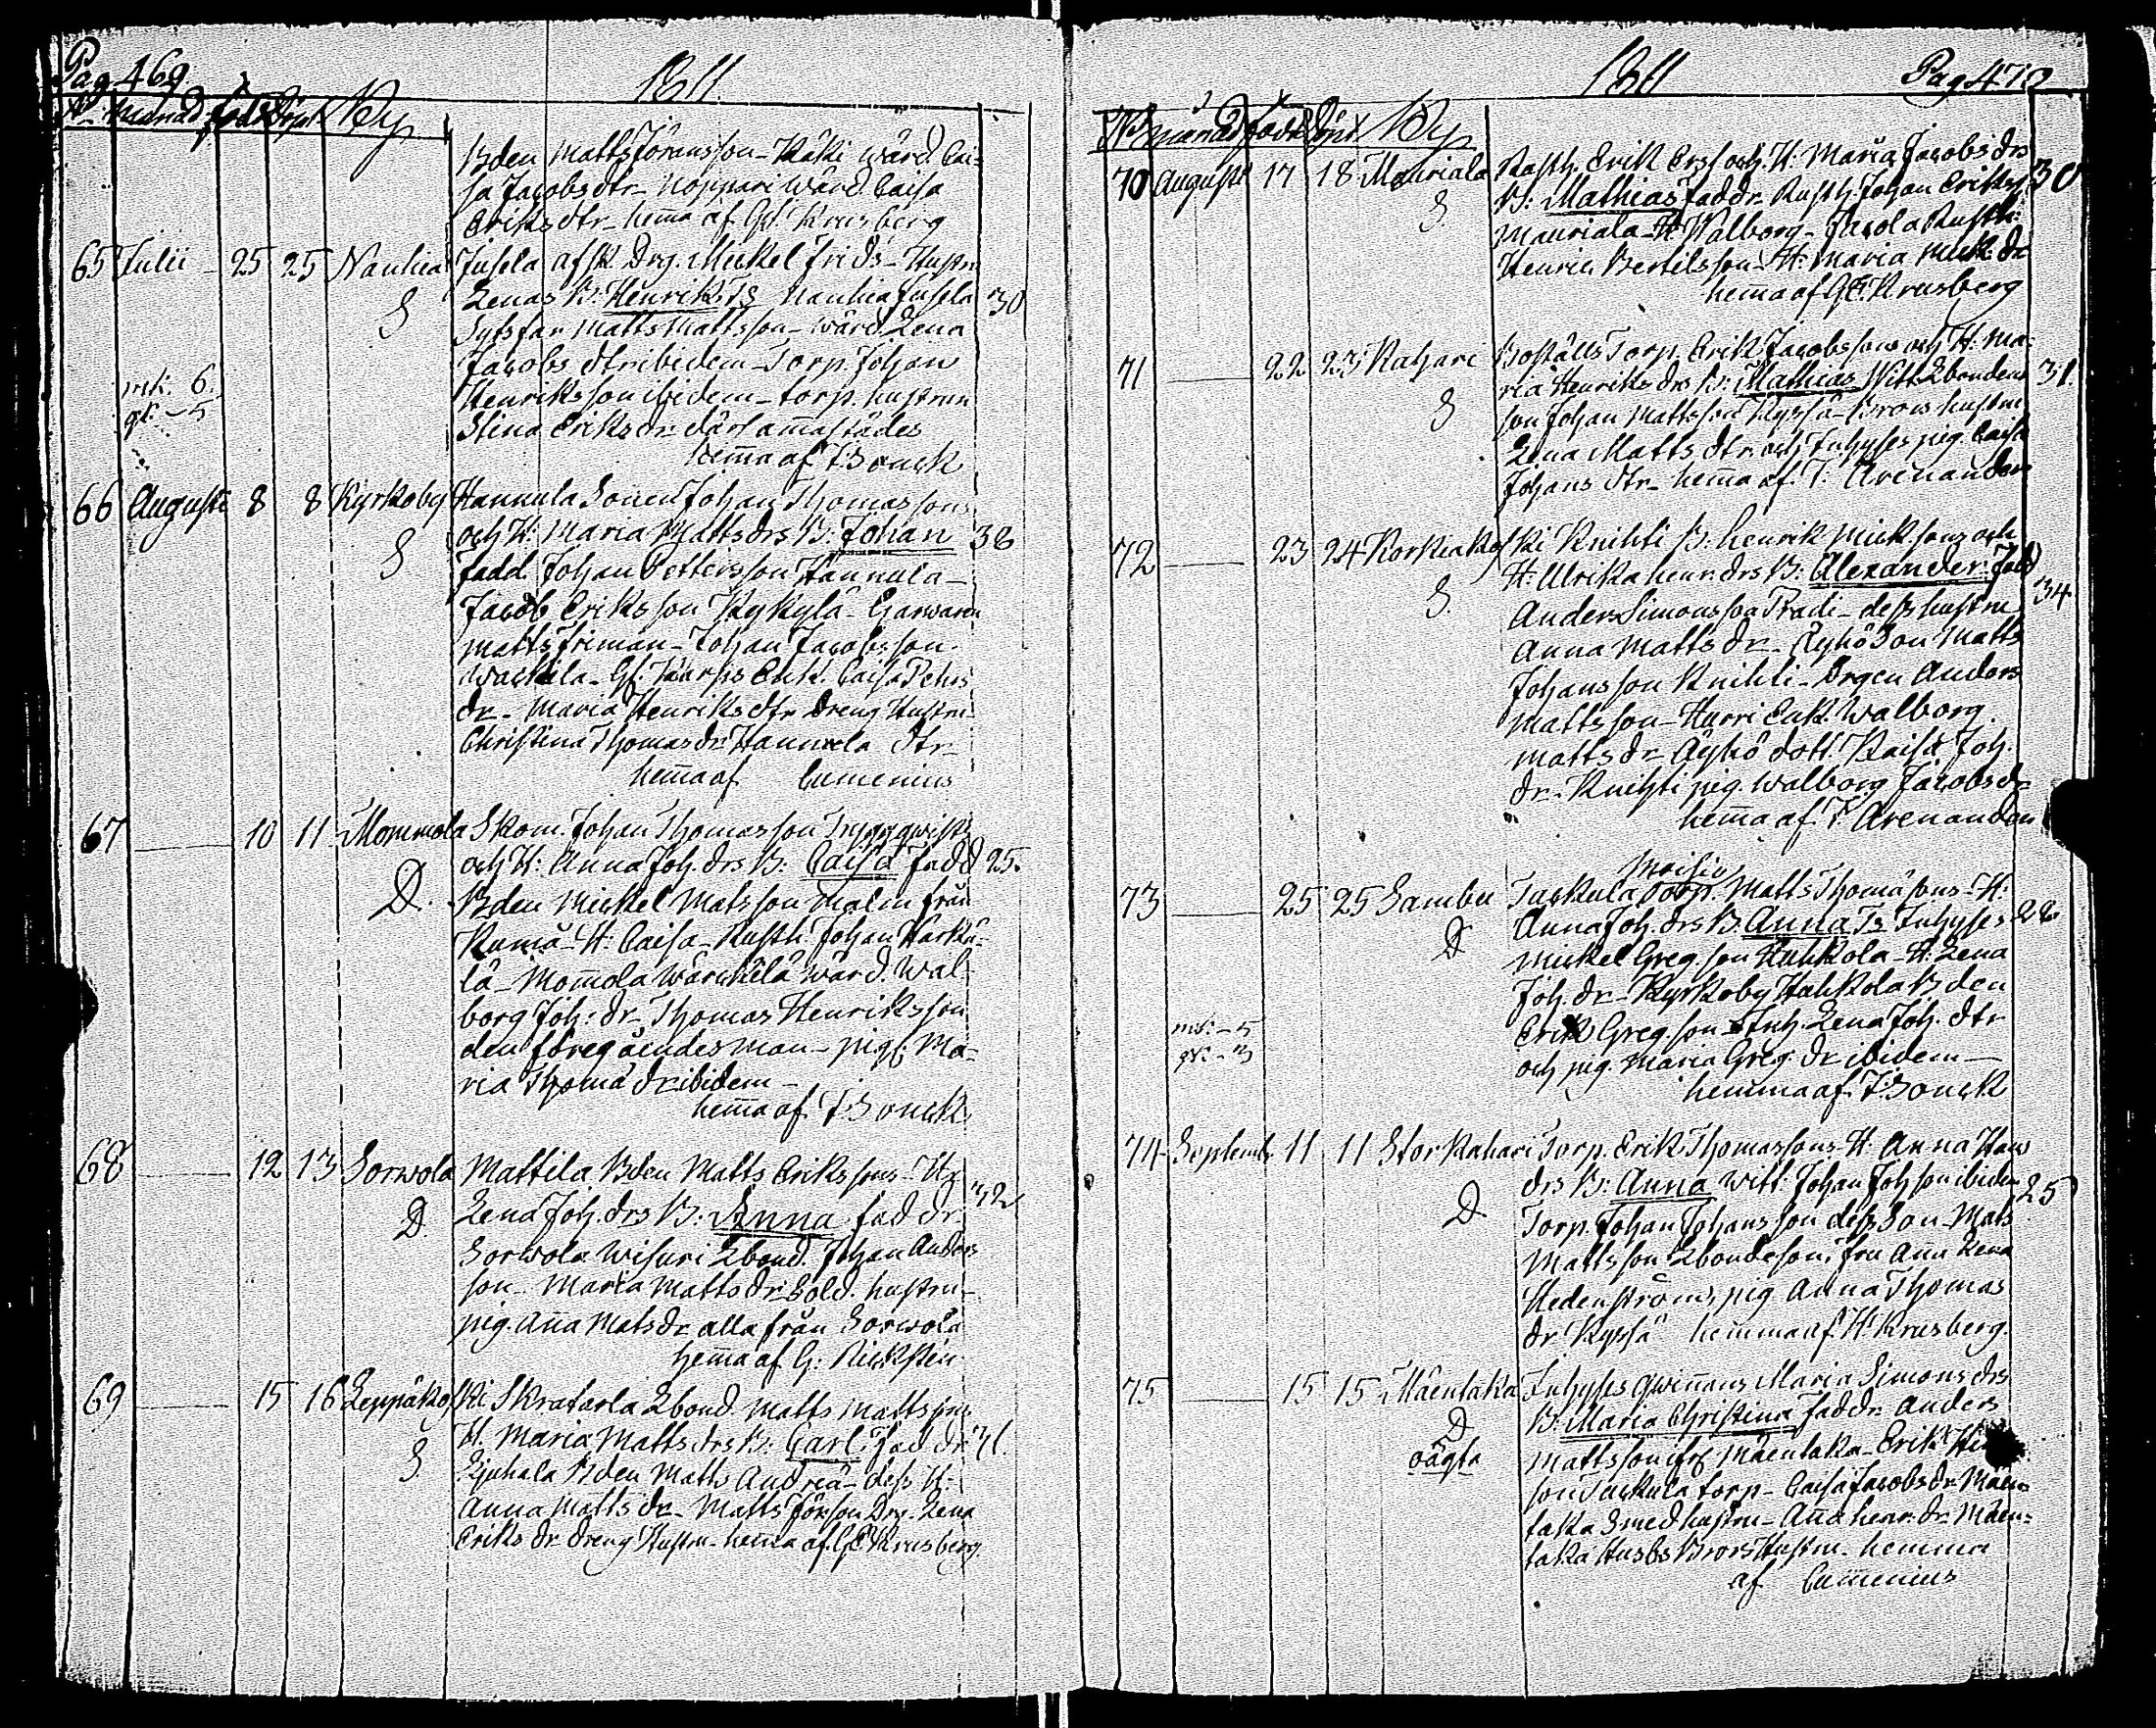 Pag 469.
1811.
N månad född Döpt By
Bden Matts Jöransson - Käki wärd. Cai-
sa Jacobs dtr - Noppari wärd. Caisa
Eriks dtr - hemma af G. Krusberg
65 Julii - 25 25 Nauhia Jusela afsk. Drg. Mickel Frids - Hustru
S Lenas B: Henrik Ts Nauhia Jusela 30
Sytofar Matts Mattsson - wärd. Lena
Jacobs dtr ibidem - Torp. Johan
mk: 6. Henriksson ibidem - torp. hustrun
qk: - 5 Stina Eriks dr därsammastädes
hemma af F: Sonck
66 Augusti 8 8 Kyrkoby Hannula Sonen Johan Thomassons
S och H: Maria Matts drs B: Johan 36
fadd. Johan Pettersson Hannula -
Jacob Eriksson Kykylä - Garwaren
Matts Friman - Johan Jacobsson
Wackila - Enk. Caisa Pehrs
dr - Maria Henriks dtr Dreng Hustru -
Christina Thomas dr Hannula dtr -
hemma af Cumenius
67 10 11 Mommola Skom. Johan Thomasson
och H: Anna Joh. drs B: Caisa fadd 25.
D. Bden Mickel Matsson Malm från
Kumå - H: Caisa - Rusth. Johan Härkä-
lä - Mommola wärd. Wal-
borg Joh: dr - Thomas Henriksson
den föregåendes man - pig. Ma-
ria Thoma dr ibidem -
hemma af F: Sonck
68 12 13 Sorwola Mattila Bden Matts Erikssons - H:
D. Lena Joh. drs B: Anna fad dr 32
Sorwola Wisuri Lbond. Johan Anders
son - Maria Matts dr Sold. hustru -
pig. Anna Mats dr alla från Sorwola
hemma af G: Rickstén
69 15 16 Leppäkoski Skrafarla Lbond Matts Mattsson
H. Maria Matts drs B: Carl. fad dr 31.
S Bden Matts Andreä - dess H:
Anna Matts dr - Matts Jörson Drg. Lena
Eriks dr dreng Hustru - hemma af G Krusberg.
1811 Pag 470
N månad född Döpt By
70 Augusti 17 18 Mauriala Rusth. Erik Ers och H: Maria Jacobs drs
S B: Mathias fad dr Rusth. Johan Eriks 30
Mauriala - H: Walborg - Jacola Rusth:
Henric Bertilsson - H: Maria Mick: dr
hemma af G Krusberg
71 22 23 Rahari Boställs Torp. Erik Jacobssons och H: Ma-
ria Henriks drs B: Mathias Witt. Lbondens 31.
S son Johan Mattsson Kyssä - Brors hustru
Lena Matts dtr och Inhyses pig. Caisa
Johans dtr - hemma af T: Arenander
72 23 24 Korkiakoski Knihti B. Henrik Micksons och
S. H. Ulrika Henr. drs B: Alexander. fadd 34.
Anders Simonsson Pradi - dess hustru
Anna Matts dr - Äyhö Son Matts
Johansson Knihti - Drgen Anders
Mattsson - Hurri Enk. Walborg
Matts dr - Äyhö dott. Kaisa Joh.
dr - Knihti pig. Walborg Jacobs dr
hemma af T. Arenander
73 25 25 Sambu Tackula Torp. Matts Thomäsons - H:
D Anna Joh. drs B. Anna Ts Inhyses 22
Mickel Greg. son Huhkola - H: Lena
Joh. dr - Kyrkoby Huhkola Bden
mk: - 5 Erik Greg. son - Inh: Lena Joh. dtr
qk: - 3 och pig. Maria Greg: dr ibidem -
hemma af F: Sonck
74 Septemb. 11 11 Stor Rahari Torp. Erik Thomassons - H: Anna Hen
D drs B: Anna Witt: Johan Johsson ibidem 25
Torp. Johan Johansson dess Son - Mats
Mattsson Lbondeson, fru Anna Lena
Hedenström, pig Anna Thomas
dr Kyssä hemma af H: Krusberg.
75 15 15 Mäentaka Inhyses qwinnans Maria Simons drs
D B. Maria Christina fad dr Anders
oägta Mattsson Mäentaka - Erik
son Tackula torp - Caisa Jacobs dr Mäen-
taka Smed hustru - Anna Henr: dr Mäen-
taka Husbs Brors Hustru - hemma
af Cumenius